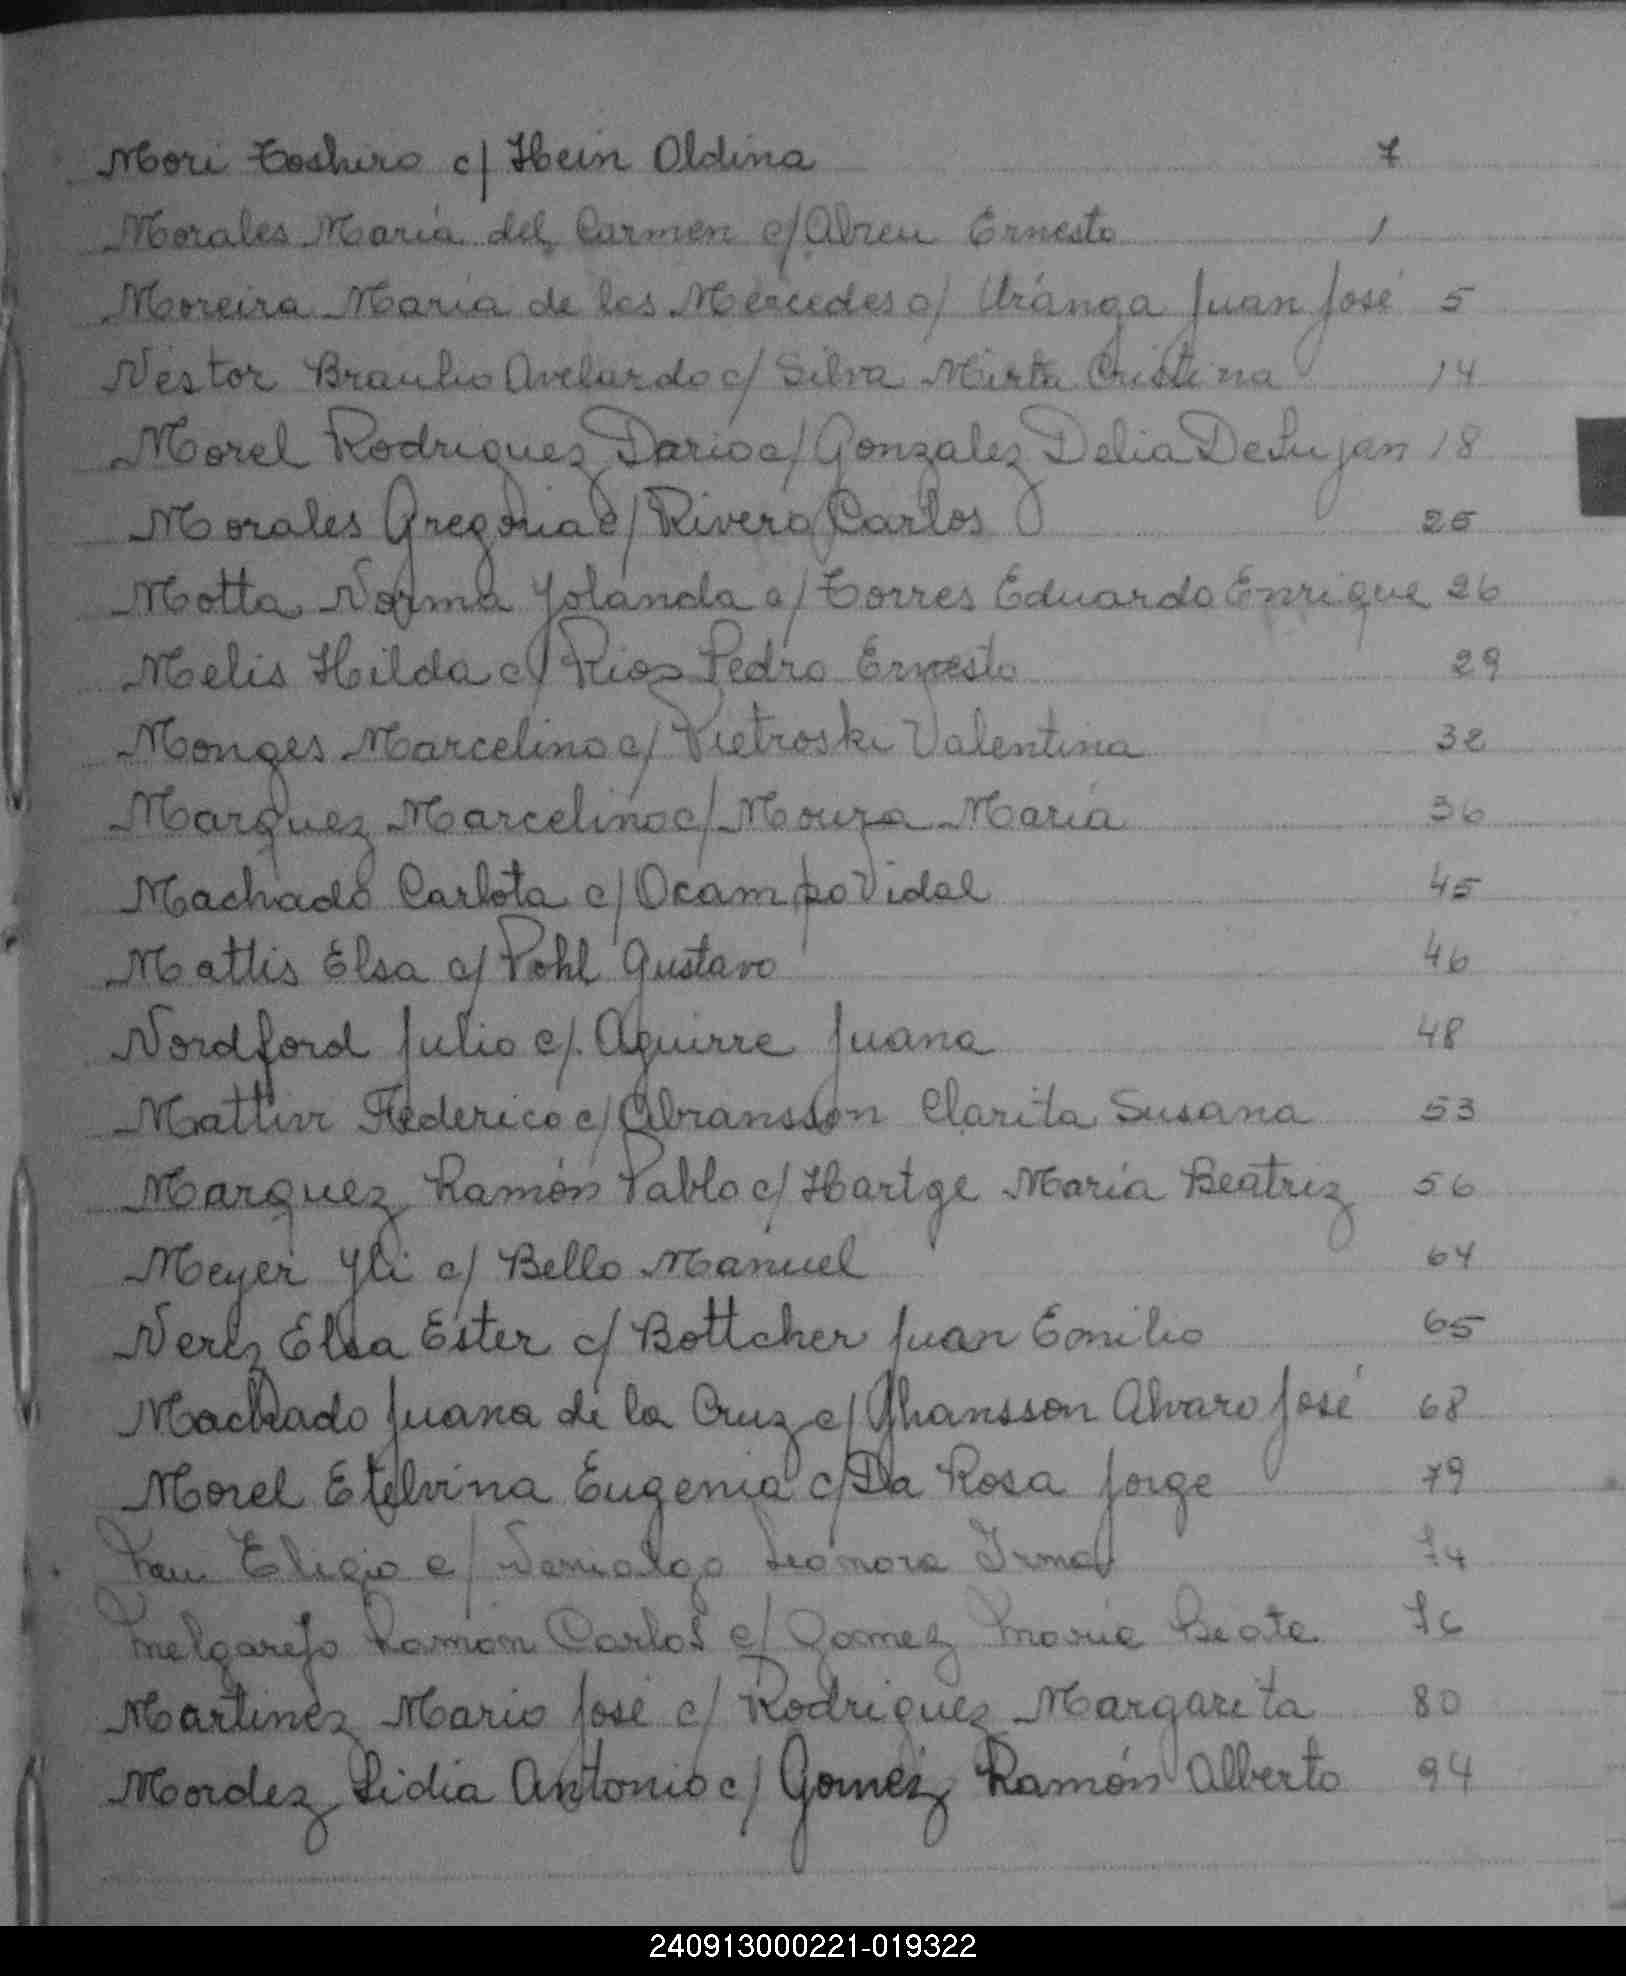 Mori Toshiro c/ Hein Oldina 7
Morales María del Carmen c/ Abreu Ernesto 1
Moreira María de las Mercedes c/ Uránga Juan José 5
Néstor Braulio Avelardo c/ Silva Mirta Cristina 14
Morel Rodriguez Dario c/ Gonzalez Delia De Lujan 18
Morales Gregoria c/ Rivero Carlos 25
Motta Norma Yolanda c/ Torres Eduardo Enrique 26
Melis Hilda c/ Rios Pedro Ernesto 29
Monges Marcelino c/ Pietroski Valentina 32
Marquez Marcelino c/ Moura María 36
Machado Carlota c/ Ocampo Vidal 45
Mattis Elsa c/ Pohl Gustavo 46
Nordford Julio c/. Aguirre Juana 48
Federico c/ Abransson Clarita Susana 53
Marquez Ramón Pablo c/ Hartge María Beatriz 56
Meyer Yli c/ Bello Manuel 64
Nerez Elsa Ester c/ Bottcher Juan Emilio 65
Machado Juana de la Cruz c/ Ghansson Alvaro José 68
Morel Etelvina Eugenia c/ Da Rosa Jorge 79
Eligio c/ Leonora Irma 74
Melgarejo Ramón Carlos c/ Gomez María Beata 76
Martinez Mario José c/ Rodriguez Margarita 80
Mordez Lidia Antonio c/ Gomez Ramón Alberto 94
240913000221-019322